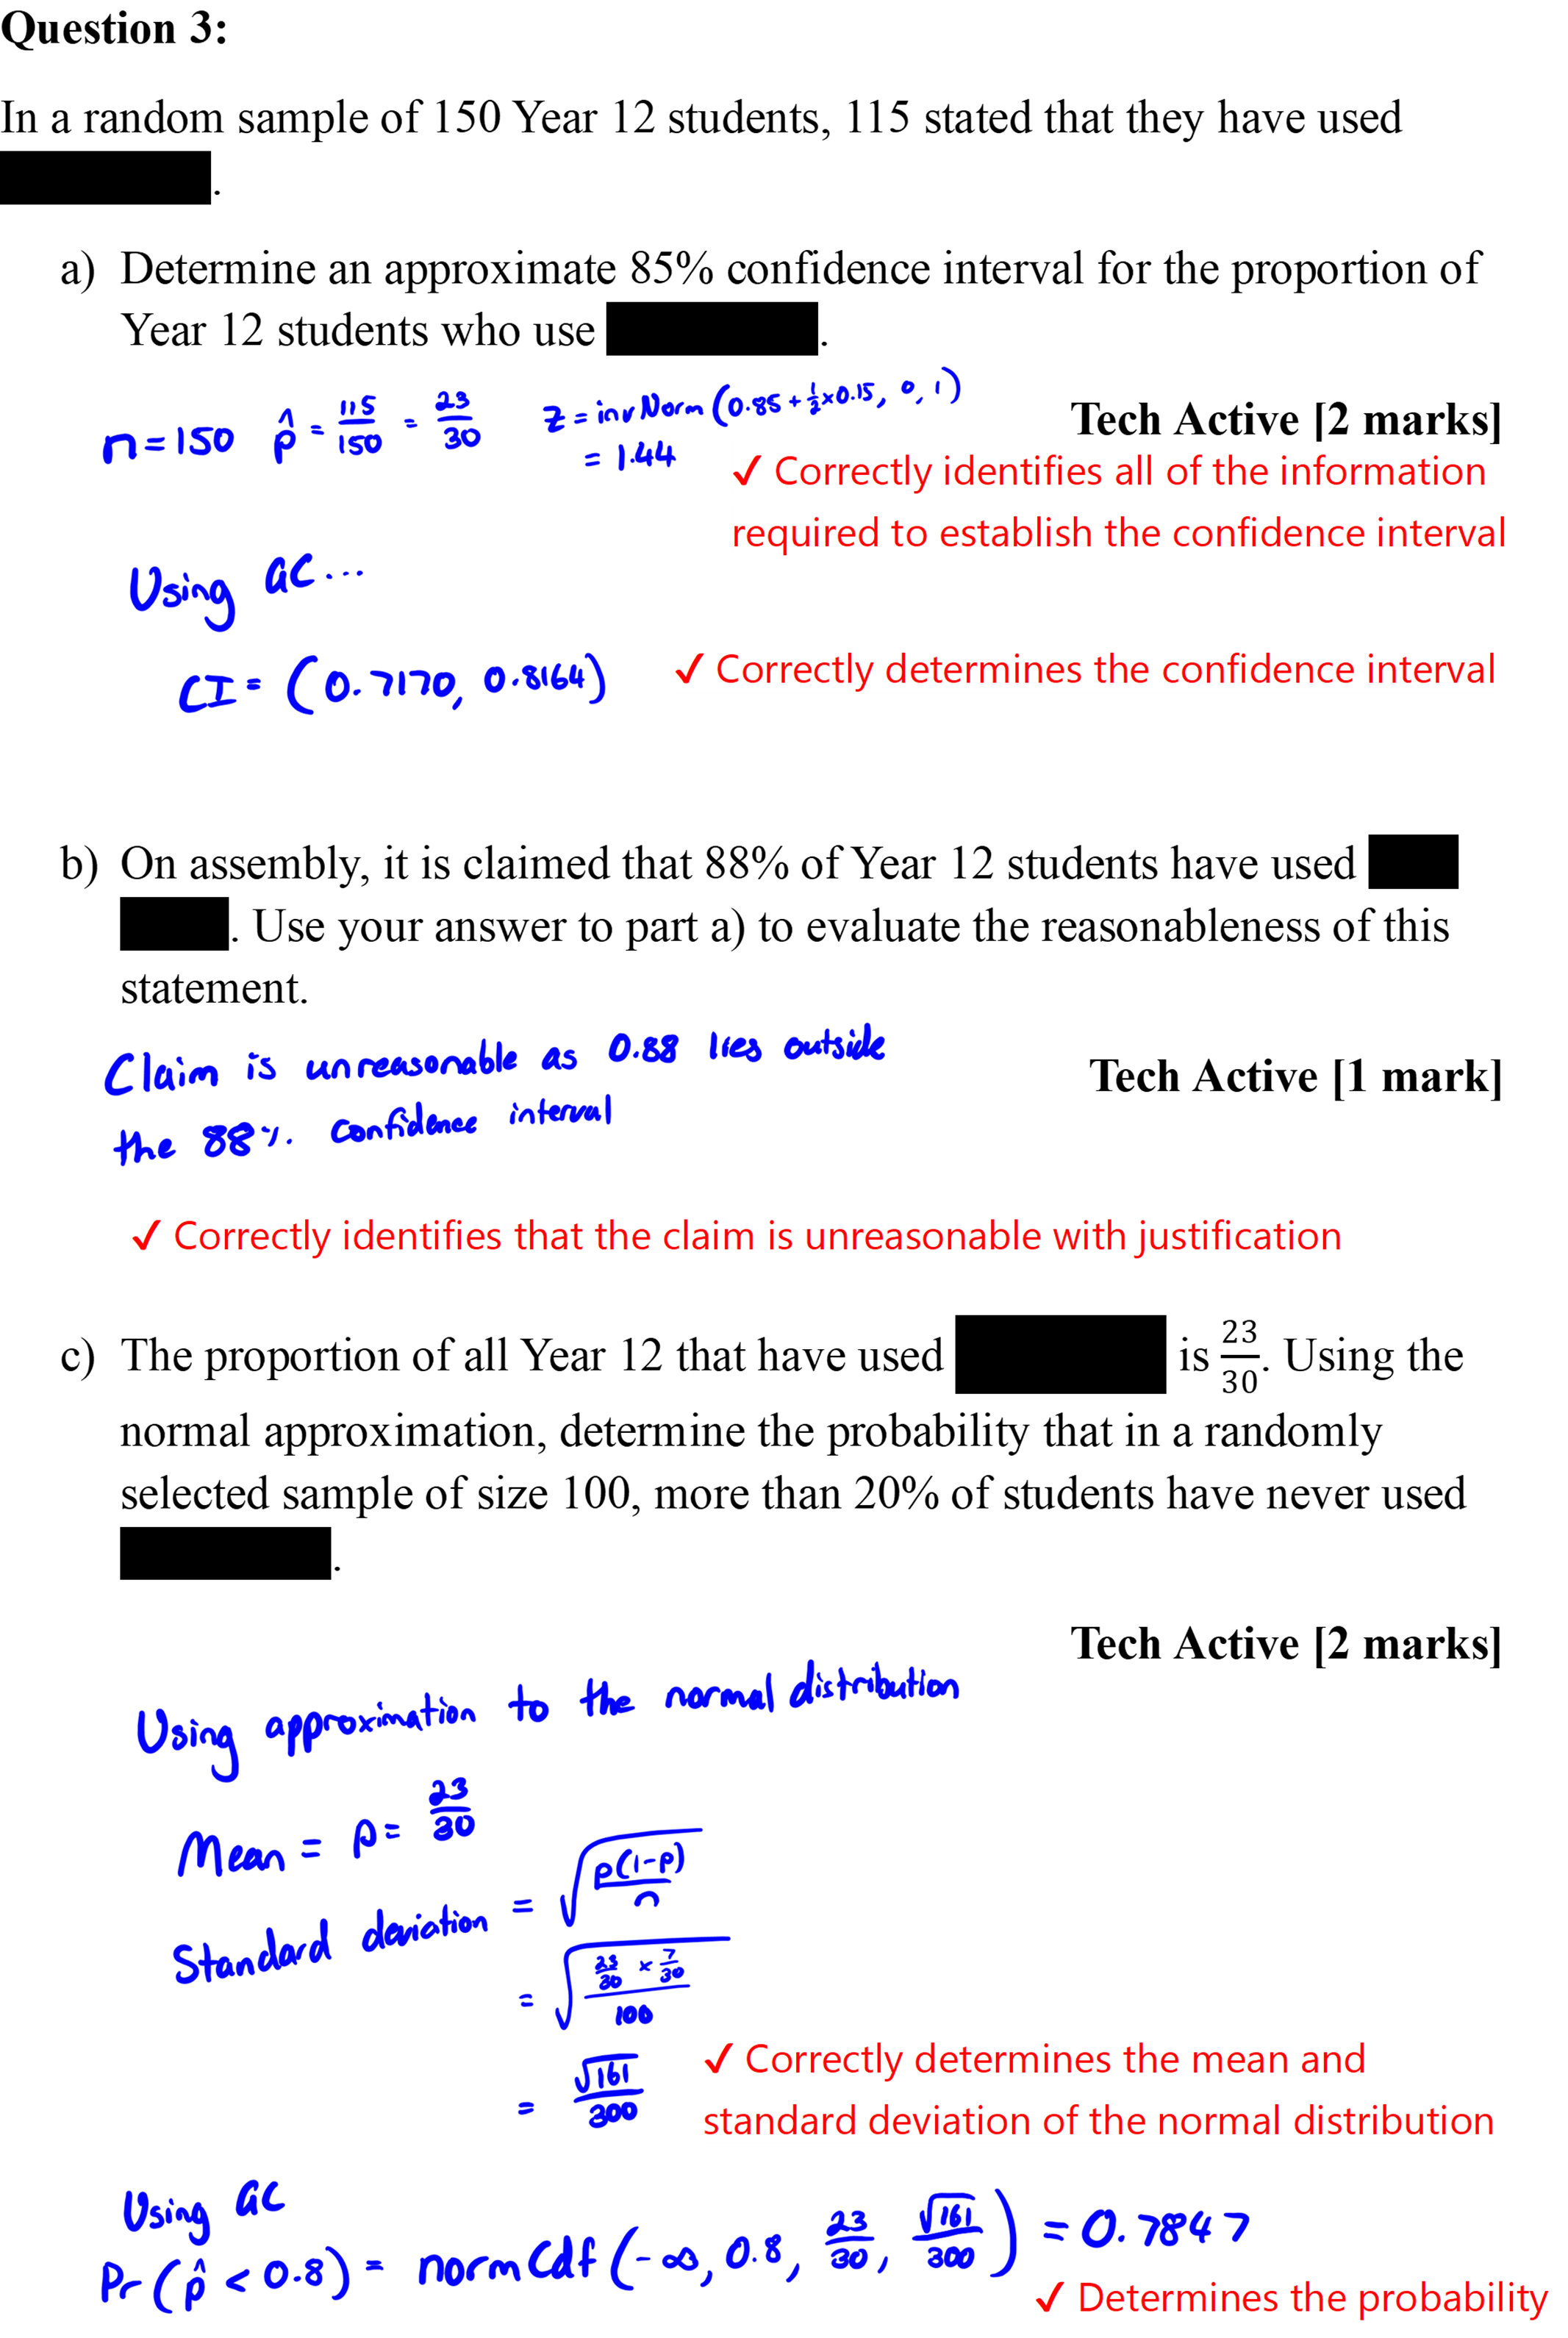 Question 3:
In a random sample of 150 Year 12 students, 115 stated that they have used
.
a) Determine an approximate 85% confidence interval for the proportion of
Year 12 students who use .
n = 150 p̂ = 115/150 = 23/30 z = invNorm (0.85 + 1/2 × 0.15, 0, 1)
= 1.44
Tech Active [2 marks]
✓ Correctly identifies all of the information
required to establish the confidence interval
Using GC...
CI = (0.7170, 0.8164) ✓ Correctly determines the confidence interval
b) On assembly, it is claimed that 88% of Year 12 students have used
. Use your answer to part a) to evaluate the reasonableness of this
statement.
Claim is unreasonable as 0.88 lies outside
the 88% confidence interval
Tech Active [1 mark]
✓ Correctly identifies that the claim is unreasonable with justification
c) The proportion of all Year 12 that have used is 23/30. Using the
normal approximation, determine the probability that in a randomly
selected sample of size 100, more than 20% of students have never used
.
Tech Active [2 marks]
Using approximation to the normal distribution
Mean = p = 23/30
Standard deviation = √(p(1-p)/n)
= √((23/30 × 7/30)/100)
= √161/300
✓ Correctly determines the mean and
standard deviation of the normal distribution
Using GC
Pr (p̂ < 0.8) = normCdf (-∞, 0.8, 23/30, √161/300) = 0.7847
✓ Determines the probability